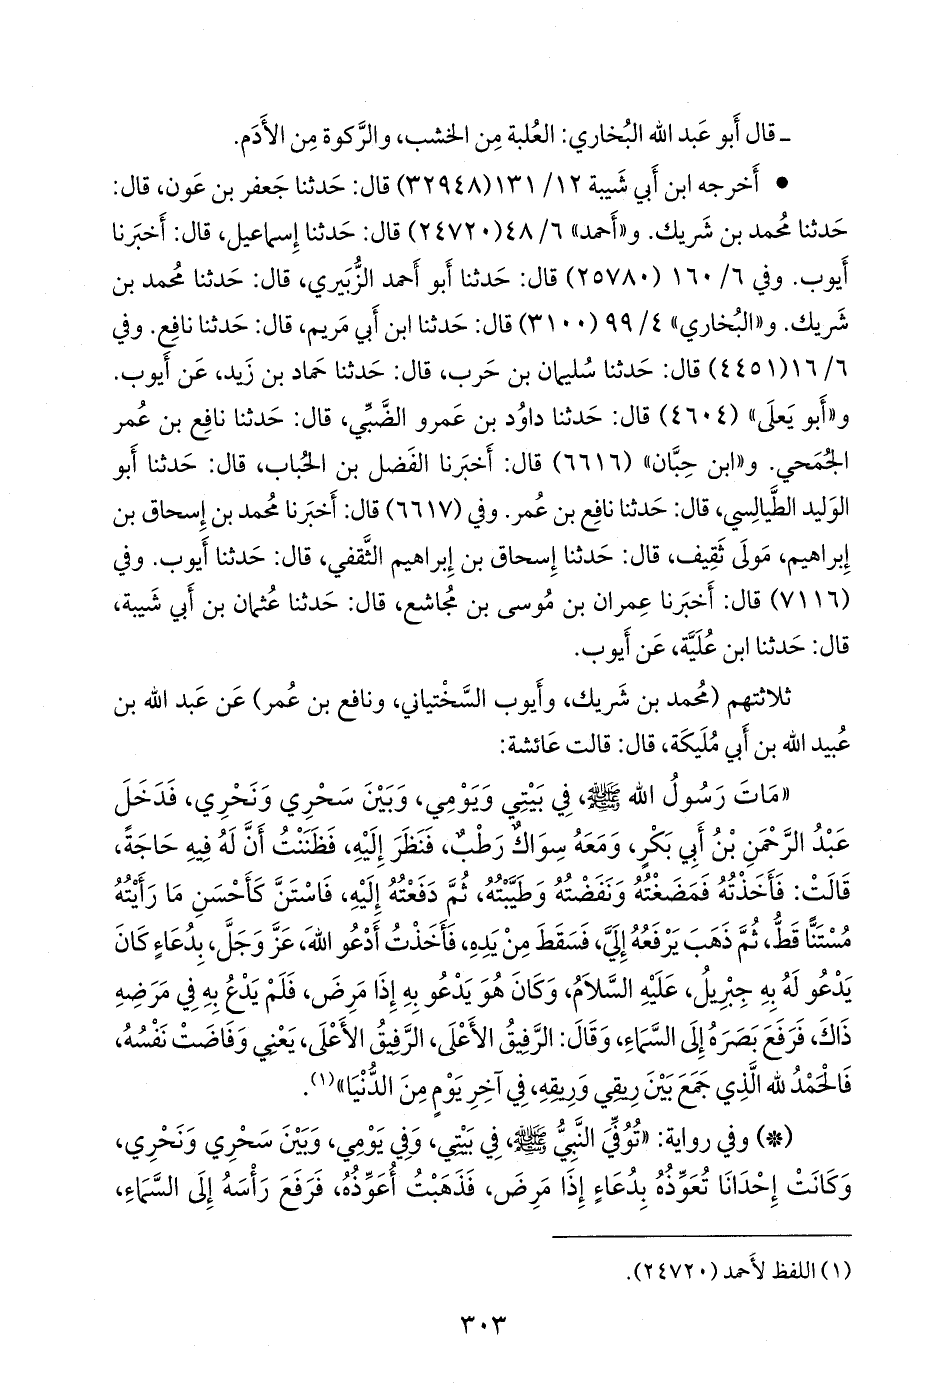 ـ قال أَبو عَبد الله البُخاري: العُلبة مِن الخشب، والرَّكوة مِن الأَدَم.
• أَخرجه ابن أَبي شَيبة ١٢/ ١٣١(٣٢٩٤٨) قال: حَدثنا جَعفر بن عَون، قال:
حَدثنا مُحمد بن شَريك. و«أَحمد» ٦/ ٤٨(٢٤٧٢٠) قال: حَدثنا إِسماعيل، قال: أَخبَرنا
أَيوب. وفي ٦/ ١٦٠ (٢٥٧٨٠) قال: حَدثنا أَبو أَحمد الزُّبَيري، قال: حَدثنا مُحمد بن
شَريك. و«البُخاري» ٤/ ٩٩ (٣١٠٠) قال: حَدثنا ابن أَبي مَريم، قال: حَدثنا نافِع. وفي
٦/ ١٦(٤٤٥١) قال: حَدثنا سُليمان بن حَرب، قال: حَدثنا حَماد بن زَيد، عَن أَيوب.
و«أَبو يَعلَى» (٤٦٠٤) قال: حَدثنا داوُد بن عَمرو الضَّبِّي، قال: حَدثنا نافِع بن عُمر
الجُمَحي. و«ابن حِبَّان» (٦٦١٦) قال: أَخبَرنا الفَضل بن الحُباب، قال: حَدثنا أَبو
الوَليد الطَّيالِسي، قال: حَدثنا نافِع بن عُمر. وفي (٦٦١٧) قال: أَخبَرنا مُحمد بن إِسحاق بن
إِبراهيم، مَولَى ثَقِيف، قال: حَدثنا إِسحاق بن إِبراهيم الثَّقفي، قال: حَدثنا أَيوب. وفي
(٧١١٦) قال: أَخبَرنا عِمران بن مُوسى بن مُجاشع، قال: حَدثنا عُثمان بن أَبي شَيبة،
قال: حَدثنا ابن عُلَيَّة، عَن أَيوب.
ثلاثتهم (مُحمد بن شَريك، وأَيوب السَّخْتياني، ونافِع بن عُمر) عَن عَبد الله بن
عُبيد الله بن أَبي مُلَيكَة، قال: قالت عَائشة:
«مَاتَ رَسُولُ الله ﷺ، فِي بَيْتِي وَيَوْمِي، وَبَيْنَ سَحْرِي وَنَحْرِي، فَدَخَلَ
عَبْدُ الرَّحْمَنِ بْنُ أَبِي بَكْرٍ، وَمَعَهُ سِوَاكٌ رَطْبٌ، فَنَظَرَ إِلَيْهِ، فَظَنَنْتُ أَنَّ لَهُ فِيهِ حَاجَةً،
قَالَتْ: فَأَخَذْتُهُ فَمَضَغْتُهُ وَنَفَضْتُهُ وَطَيَّبْتُهُ، ثُمَّ دَفَعْتُهُ إِلَيْهِ، فَاسْتَنَّ كَأَحْسَنِ مَا رَأَيْتُهُ
مُسْتَنًّا قَطُّ، ثُمَّ ذَهَبَ يَرْفَعُهُ إِلَيَّ، فَسَقَطَ مِنْ يَدِهِ، فَأَخَذْتُ أَدْعُو اللهَ، عَزَّ وَجَلَّ، بِدُعَاءٍ كَانَ
يَدْعُو لَهُ بِهِ جِبْرِيلُ، عَلَيْهِ السَّلَامُ، وَكَانَ هُوَ يَدْعُو بِهِ إِذَا مَرِضَ، فَلَمْ يَدْعُ بِهِ فِي مَرَضِهِ
ذَاكَ، فَرَفَعَ بَصَرَهُ إِلَى السَّمَاءِ، وَقَالَ: الرَّفِيقُ الأَعْلَى، الرَّفِيقُ الأَعْلَى، يَعْنِي وَفَاضَتْ نَفْسُهُ،
فَالْحَمْدُ لله الَّذِي جَمَعَ بَيْنَ رِيقِي وَرِيقِهِ، فِي آخِرِ يَوْمٍ مِنَ الدُّنْيَا»(١).
(*) وفي رواية: «تُوُفِّيَ النَّبِيُّ ﷺ، فِي بَيْتِي، وَفِي يَوْمِي، وَبَيْنَ سَحْرِي وَنَحْرِي،
وَكَانَتْ إِحْدَانَا تُعَوِّذُهُ بِدُعَاءٍ إِذَا مَرِضَ، فَذَهَبْتُ أُعَوِّذُهُ، فَرَفَعَ رَأْسَهُ إِلَى السَّمَاءِ،
(١) اللفظ لأَحمد (٢٤٧٢٠).
٣٠٣